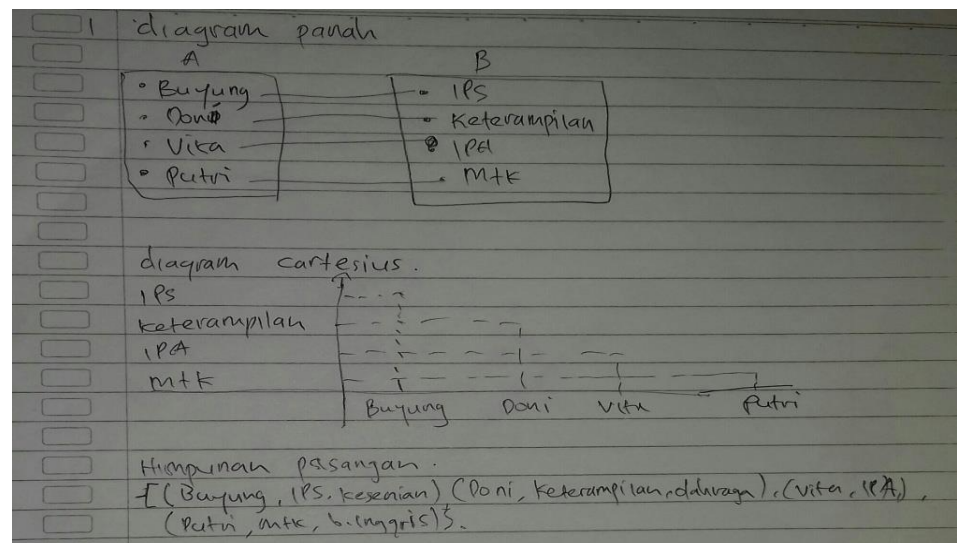 1 diagram panah
A B
• Buyung • IPS
• Doni • Keterampilan
• Vika • IPA
• Putri • MtK
diagram cartesius.
IPS
keterampilan
IPA
mtk
Buyung Doni Vita Putri
Himpunan pasangan.
{(Buyung, IPS, kesenian) (Doni, keterampilan, olahraga), (Vita, IPA),
(Putri, mtk, b. inggris)}.